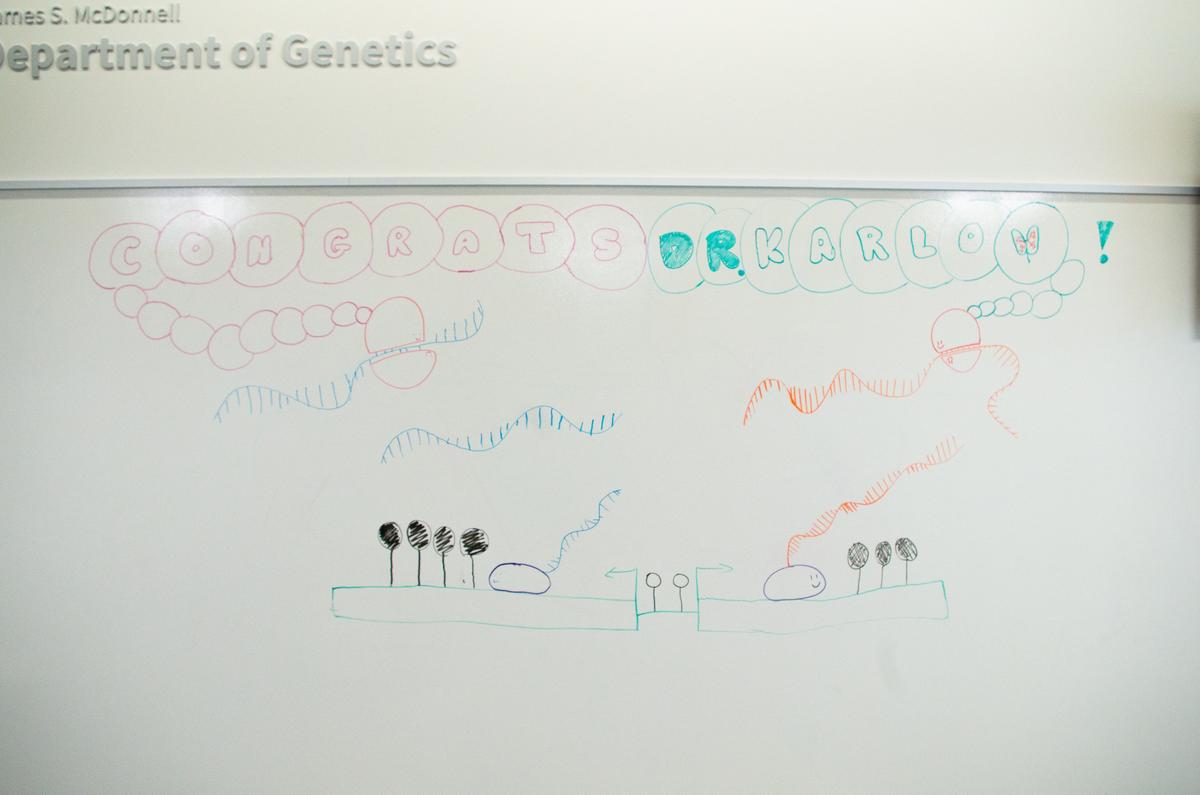 ames S. McDonnell
Department of Genetics
CONGRATS DR. KARLOW!